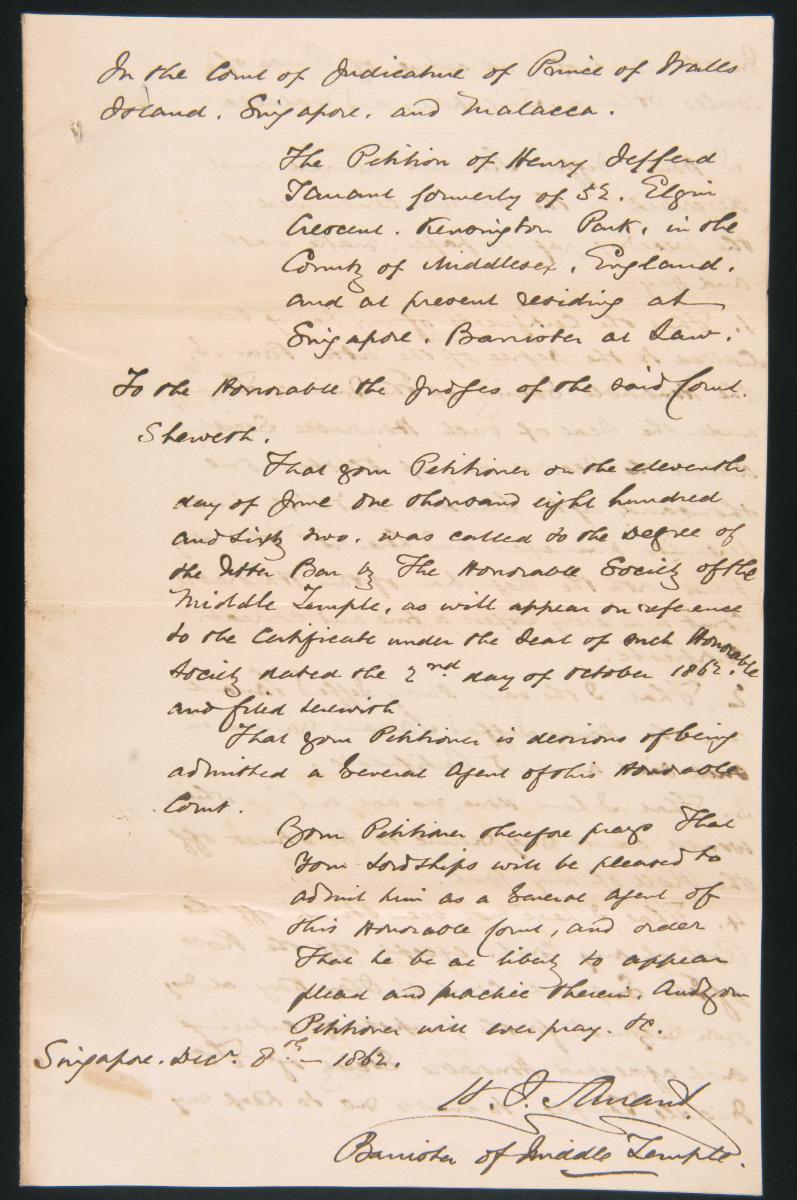 In the Court of Judicature of Prince of Wales
Island. Singapore. and Malacca.
The Petition of Henry Jefferd
Tarrant formerly of 52. Elgin
Crescent. Kensington Park. in the
County of Middlesex. England.
and at present residing at
Singapore. Barrister at Law.
To the Honorable the Judges of the said Court.
Sheweth.
That your Petitioner on the eleventh
day of June One thousand eight hundred
and sixty two. was called to the Degree of
the Utter Bar by The Honorable Society of the
Middle Temple, as will appear on reference
to the Certificate under the Seal of such Honorable
Society dated the 2nd day of October 1862.
and filed herewith
That your Petitioner is desirous of being
admitted a General Agent of this Honorable
Court.
Your Petitioner therefore prays That
Your Lordships will be pleased to
admit him as a General Agent of
this Honorable Court, and order
That he be at liberty to appear
plead and practice therein. And your
Petitioner will ever pray. &c.
Singapore. Decr. 8th — 1862.
H. J. Tarrant.
Barrister of Middle Temple.